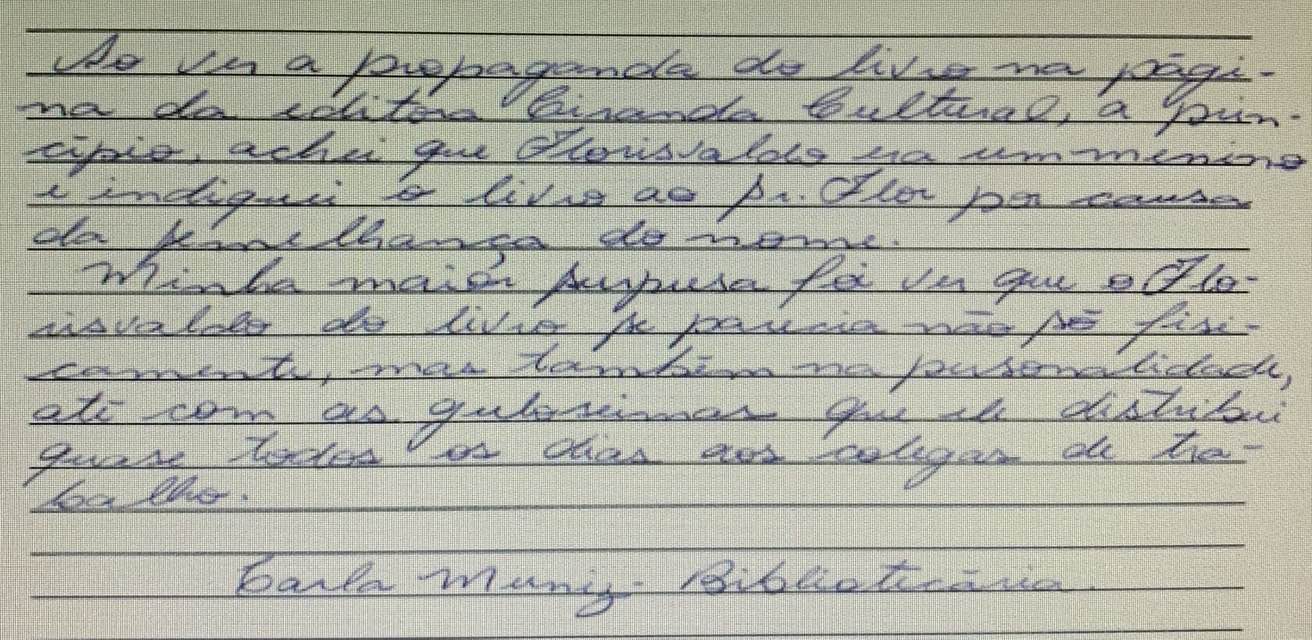 Ao ver a propaganda do livro na pági-
na da editora Ciranda Cultural, a prin-
cípio, achei que Florisvaldo era um menino
e indiquei o livro ao Sr. Flor por causa
da semelhança do nome.
Minha maior surpresa foi ver que o Flo-
risvaldo do livro se parecia não só fisi-
camente, mas também na personalidade,
até com as guloseimas que ele distribui
quase todos os dias aos colegas de tra-
balho.
Carla Muniz - Bibliotecária.